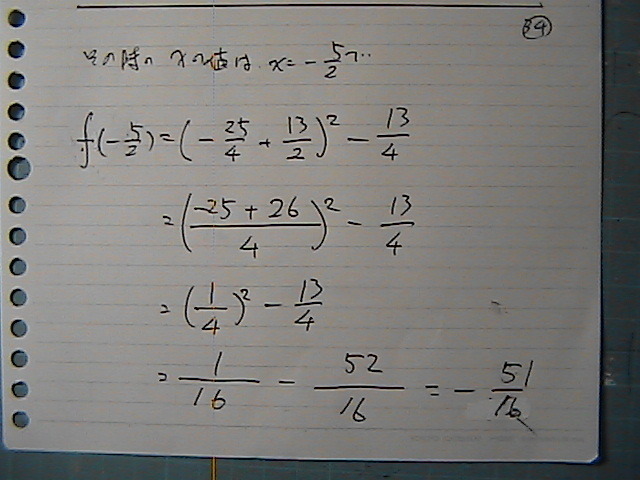 34
その時の xの値は x = -5/2 で…
f(-5/2) = (-25/4 + 13/2)² - 13/4
= ((-25 + 26)/4)² - 13/4
= (1/4)² - 13/4
= 1/16 - 52/16 = - 51/16